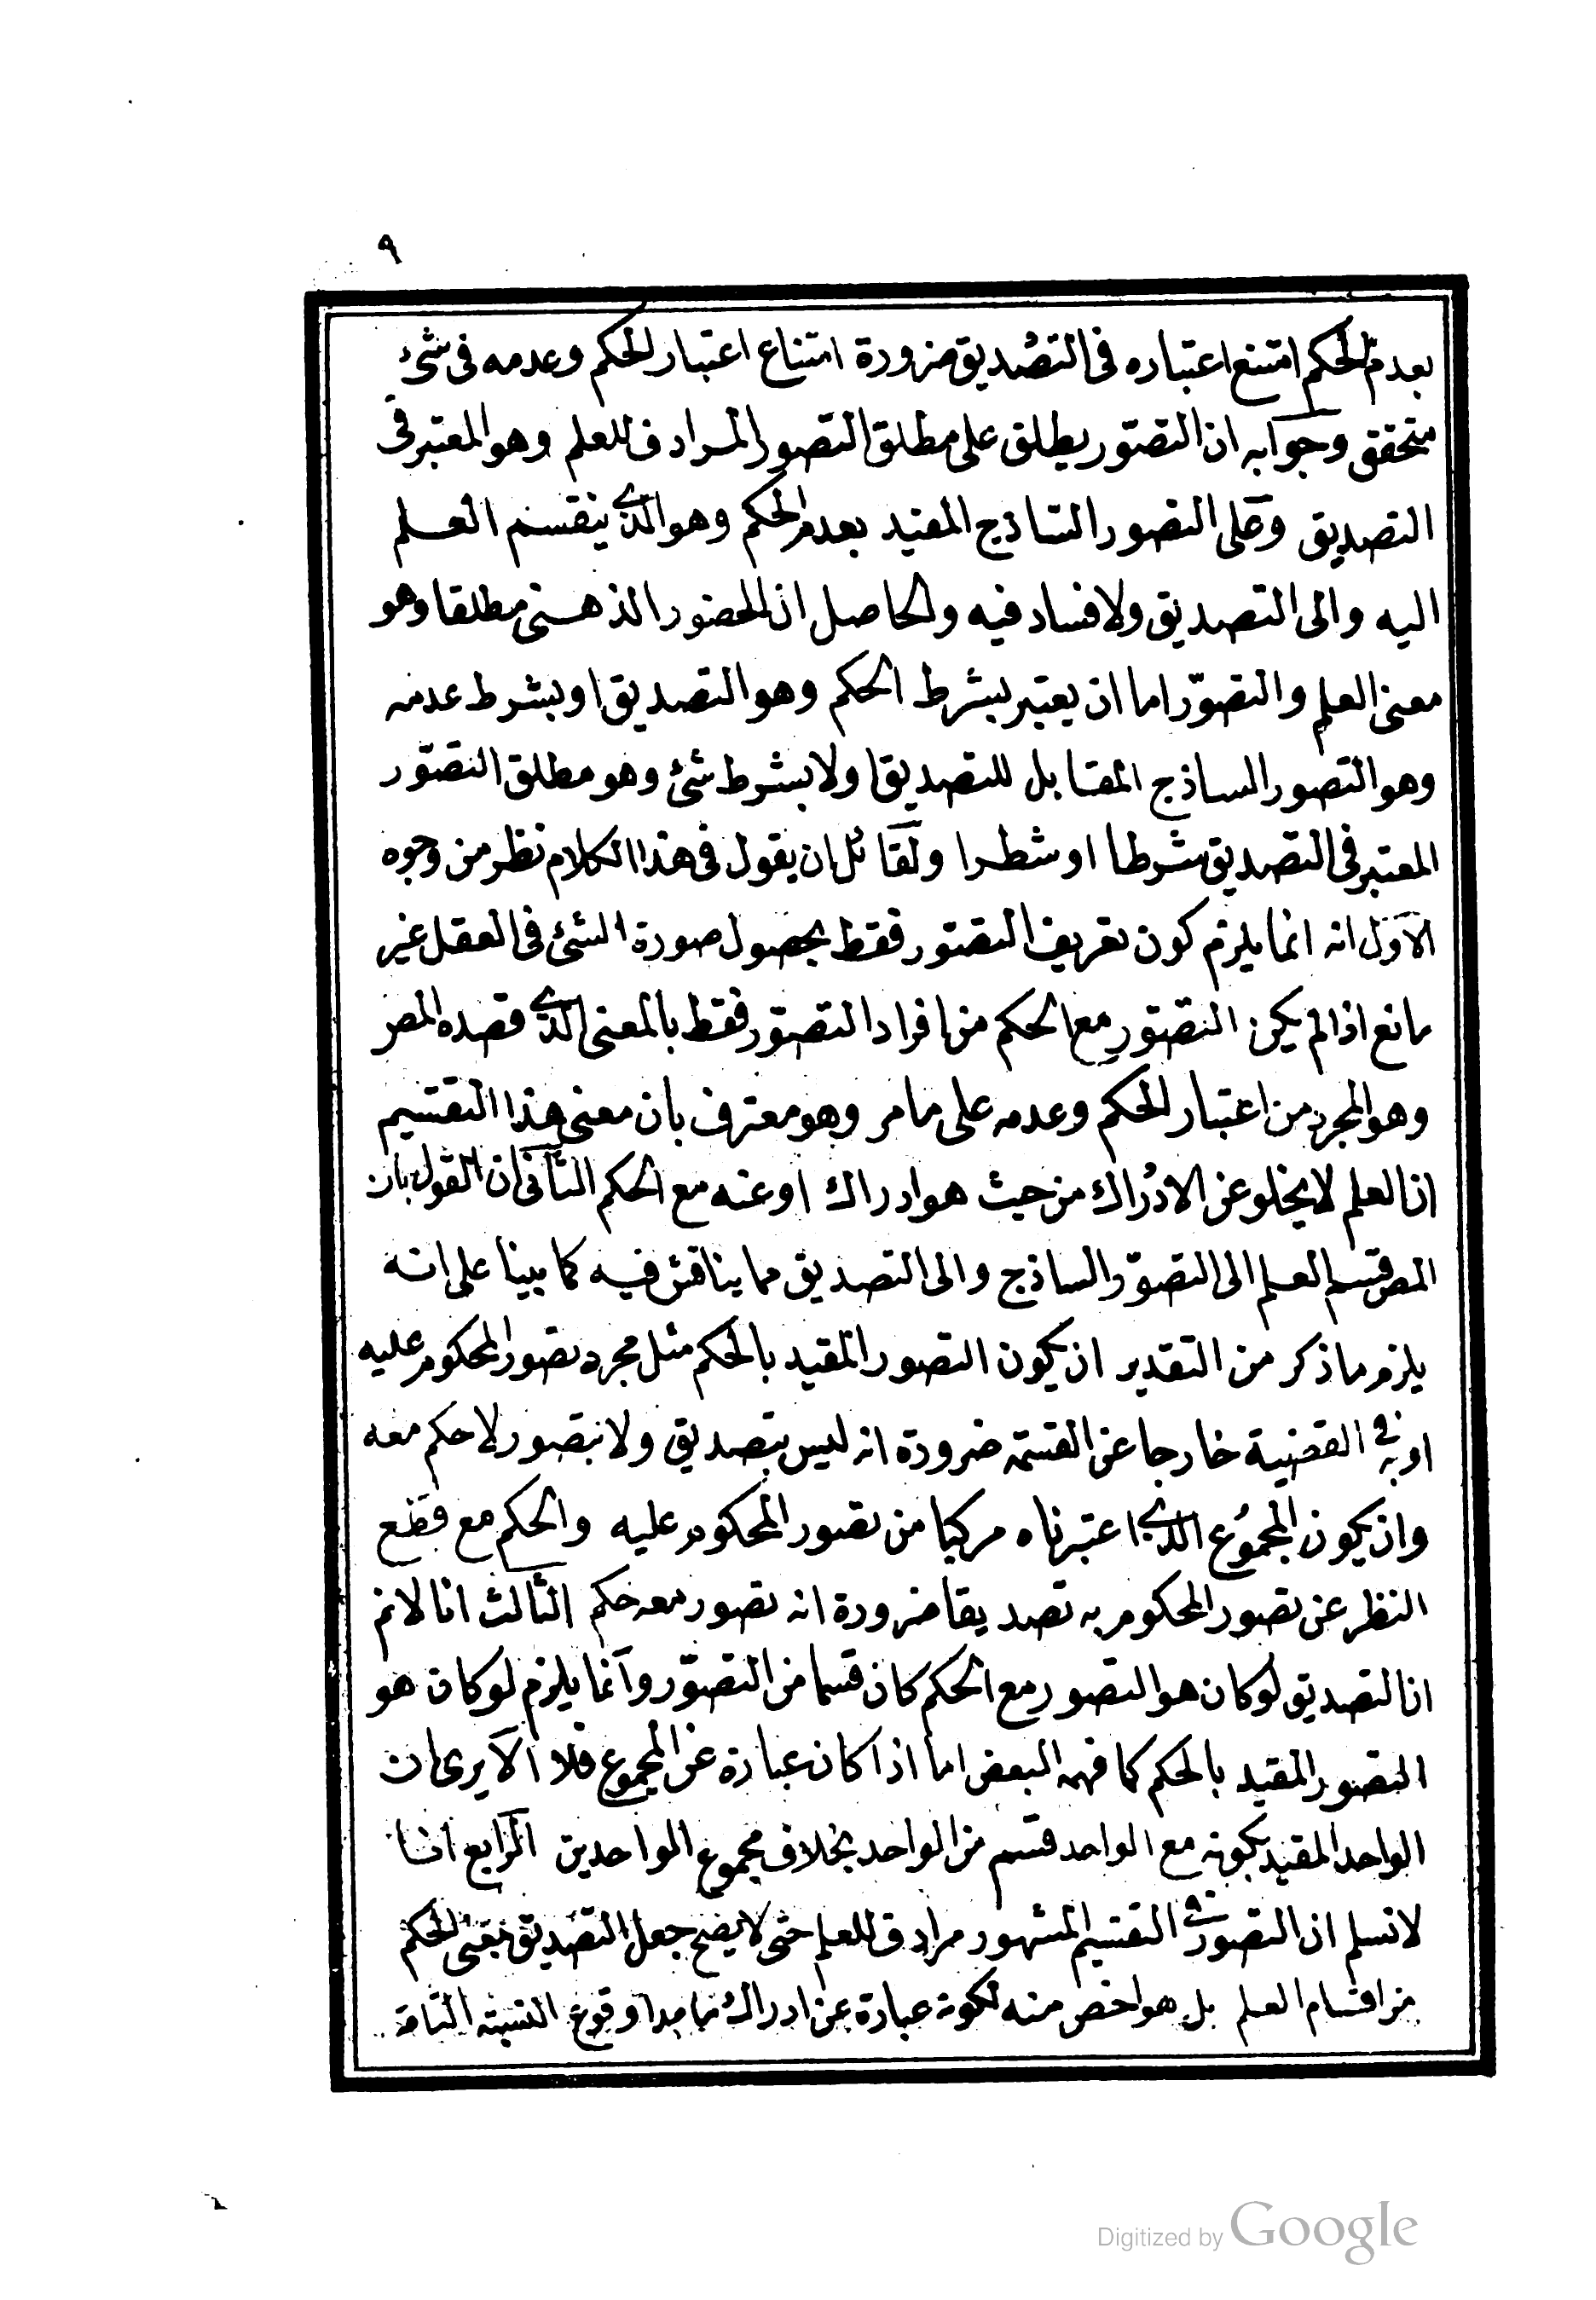 ٩
بعدم الحكم امتنع اعتباره فى التصديق ضرورة امتناع اعتبار الحكم وعدمه فى شئ
متحقق وجوابه ان التصوّر يطلق على مطلق التصور المرادف للعلم وهو المعتبر فى
التصديق وعلى التصور الساذج المقيد بعدم الحكم وهو الذى ينقسم العلم
اليه والى التصديق ولا فساد فيه والحاصل ان الحضور الذهنى مطلقا وهو
معنى العلم والتصوّر اما ان يعتبر بشرط الحكم وهو التصديق او بشرط عدمه
وهو التصور الساذج المقابل للتصديق اولا بشرط شئ وهو مطلق التصوّر
المعتبر فى التصديق شرطا او شطرا ولقائل ان يقول فى هذا الكلام نظر من وجوه
الاول انه انما يلزم كون تعريف التصور فقط بحصول صورة الشئ فى العقل غير
مانع اذا لم يكن التصور مع الحكم من افراد التصور فقط بالمعنى الذى قصده المص
وهو المجرد من اعتبار الحكم وعدمه على ما مر وهو معترف بان معنى هذا التقسيم
ان العلم لا يخلو عن الادراك من حيث هو ادراك او عنه مع الحكم الثانى ان القول بان
المص قسم العلم الى التصوّر الساذج والى التصديق مما يناقش فيه كما بينا على انه
يلزم ما ذكر من التقدير ان يكون التصور المقيد بالحكم مثل مجرد تصور المحكوم عليه
او به فى القضية خارجا عن القسمة ضرورة انه ليس بتصديق ولا بتصور لا حكم معه
وان يكون المجموع الذى اعتبرناه مركبا من تصور المحكوم عليه والحكم مع قطع
النظر عن تصور المحكوم به تصديقا ضرورة انه تصور معه حكم الثالث انا لانم
ان التصديق لو كان هو التصور مع الحكم كان قسما من التصوّر وانما يلزم لو كان هو
التصور المقيد بالحكم كما فهمه البعض اما اذا كان عبارة عن المجموع فلا الا يرى ان
الواحد المقيد بكونه مع الواحد قسم من الواحد بخلاف مجموع الواحدين الرابع انا
لا نسلم ان التصور فى التقسيم المشهور مرادف للعلم حتى لا يصح جعل التصديق بمعنى الحكم
من اقسام العلم بل هو اخص منه لكونه عبارة عن ادراك ما عدا وقوع النسبة التامة
Digitized by Google